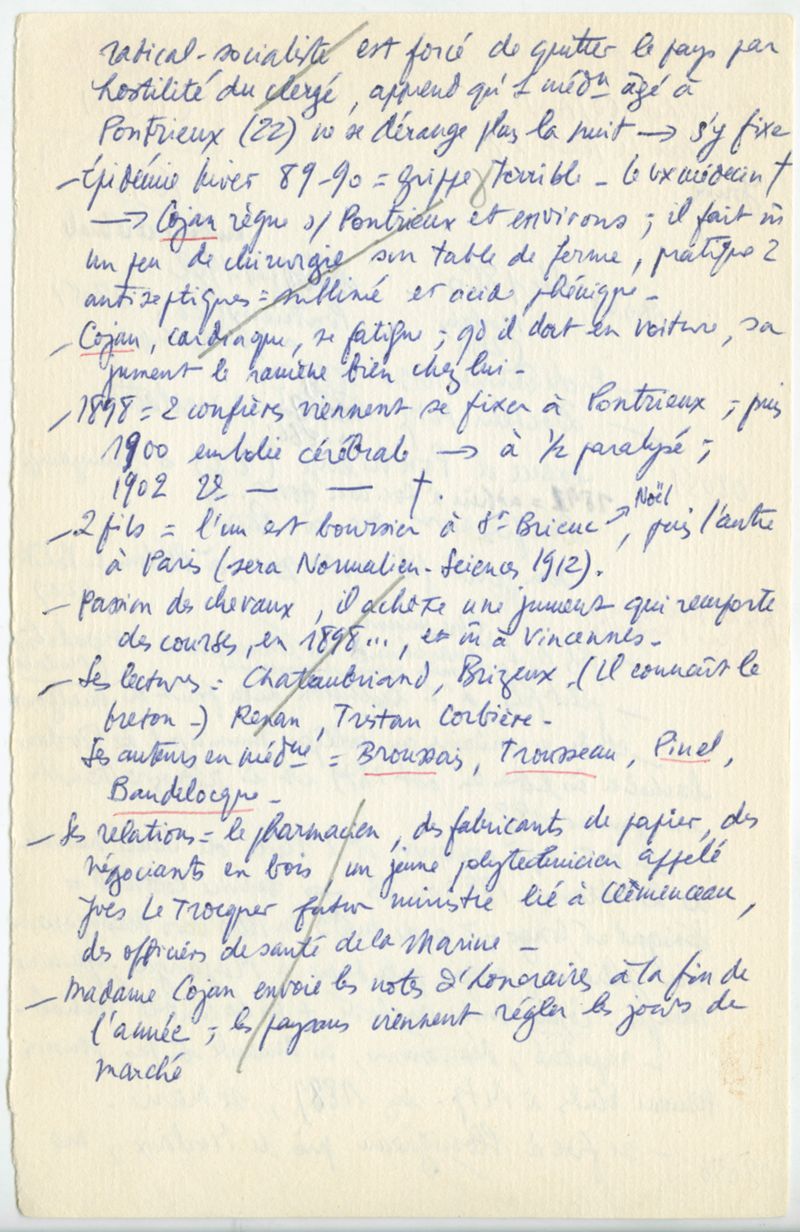 radical-socialiste est forcé de quitter le pays par
hostilité du clergé, apprend qu'1 médn âgé à
Pontrieux (22) ne se dérange plus la nuit → s'y fixe
- Épidémie hiver 89-90 = grippe terrible - le vx médecin †
→ Cojan règne s/ Pontrieux et environs ; il fait m̂
un peu de chirurgie sur table de ferme, pratique 2
antiseptiques = sublimé et acide phénique -
- Cojan, cardiaque, se fatigue ; qd il dort en voiture, sa
jument le ramène bien chez lui -
- 1898 = 2 confrères viennent se fixer à Pontrieux ; puis
1900 embolie cérébrale → à 1/2 paralysé ;
1902 2e — — †.
- 2 fils = l'un est boursier à St Brieuc → Noël, puis l'autre
à Paris (sera Normalien-Sciences 1912).
- Passion des chevaux, il achète une jument qui remporte
des courses, en 1898..., et m̂ à Vincennes -
- Ses lectures = Chateaubriand, Brizeux - (il connaît le
breton -) Renan, Tristan Corbière -
Ses auteurs en médne = Broussais, Trousseau, Pinel,
Baudelocque -
- Ses relations = le pharmacien, des fabricants de papier, des
négociants en bois, un jeune polytechnicien appelé
Yves Le Trocquer futur ministre lié à Clémenceau,
des officiers de santé de la Marine -
- Madame Cojan envoie les notes d'honoraires à la fin de
l'année ; les paysans viennent régler les jours de
marché